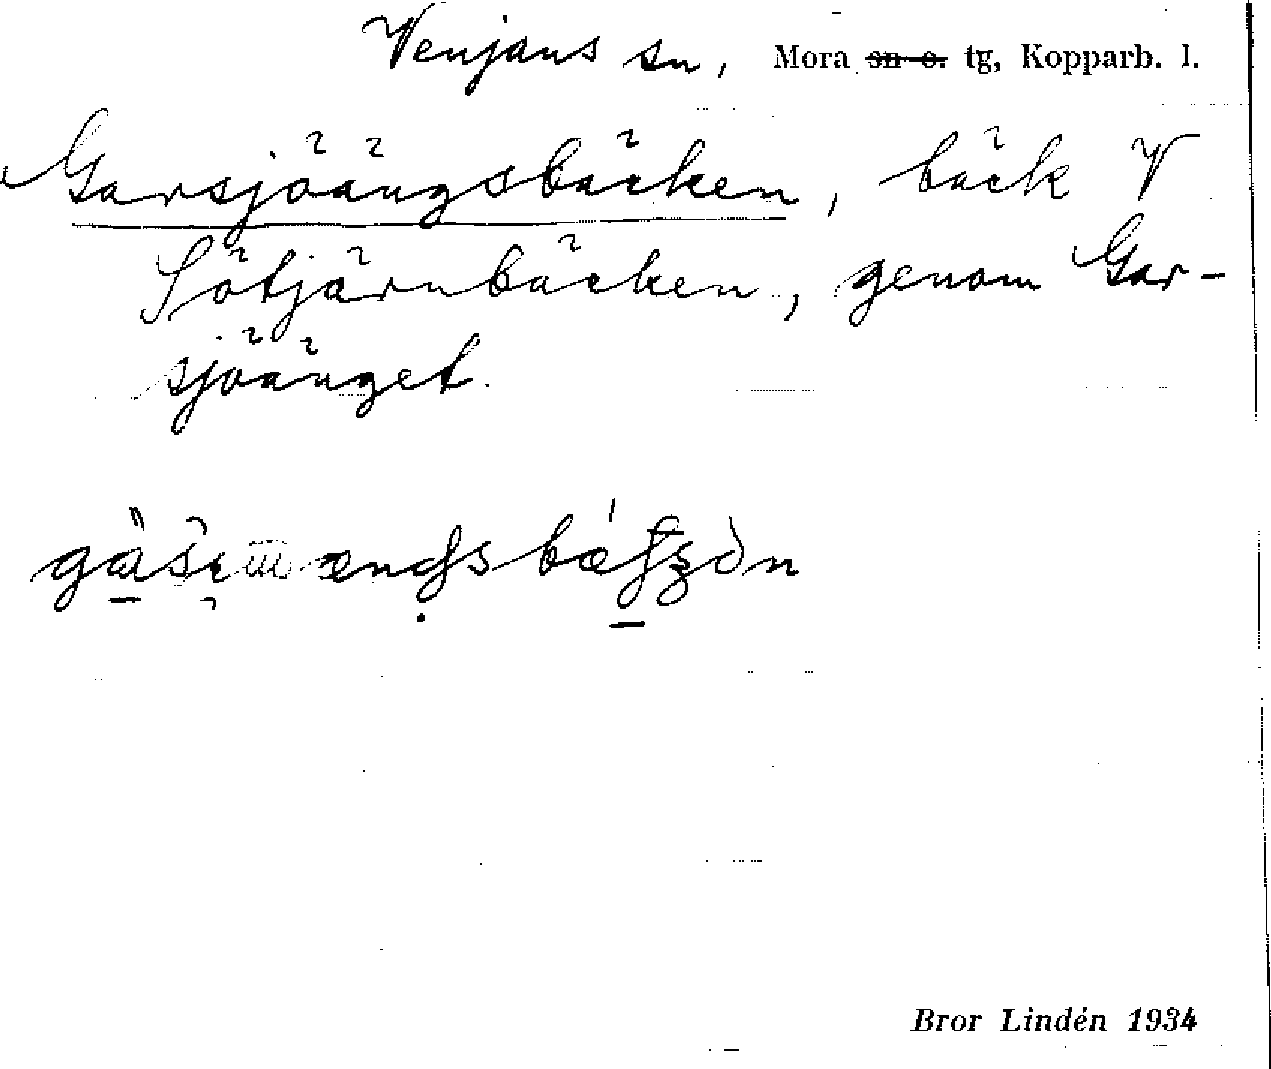 Venjans sn, Mora sn o. tg, Kopparb. l.
Garsjöängsbäcken, bäck V
Sötjärnbäcken, genom Gar-
sjöänget.
Bror Lindén 1934